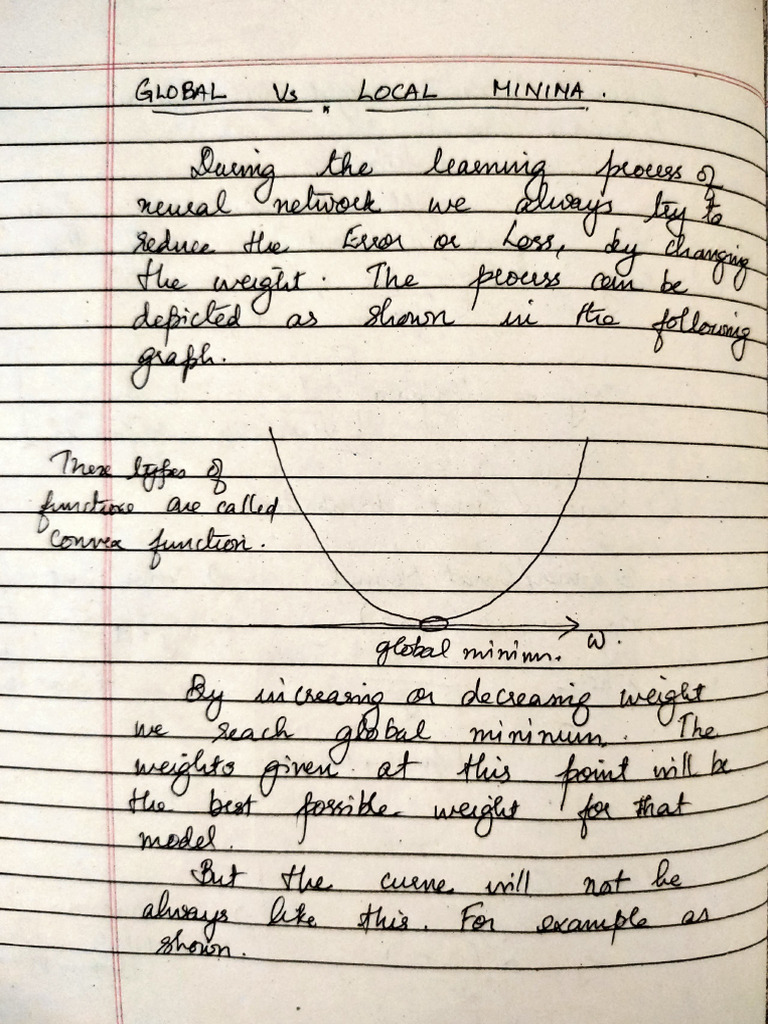 GLOBAL Vs LOCAL MININA.
During the learning process of
neural network we always try to
reduce the Error or Loss, by changing
the weight. The process can be
depicted as shown in the following
graph.
These types of
functions are called
Convex function.
global minimum. ω.
By increasing or decreasing weight
we reach global minimum. The
weights given at this point will be
the best possible weight for that
model.
But the curve will not be
always like this. For example as
shown.